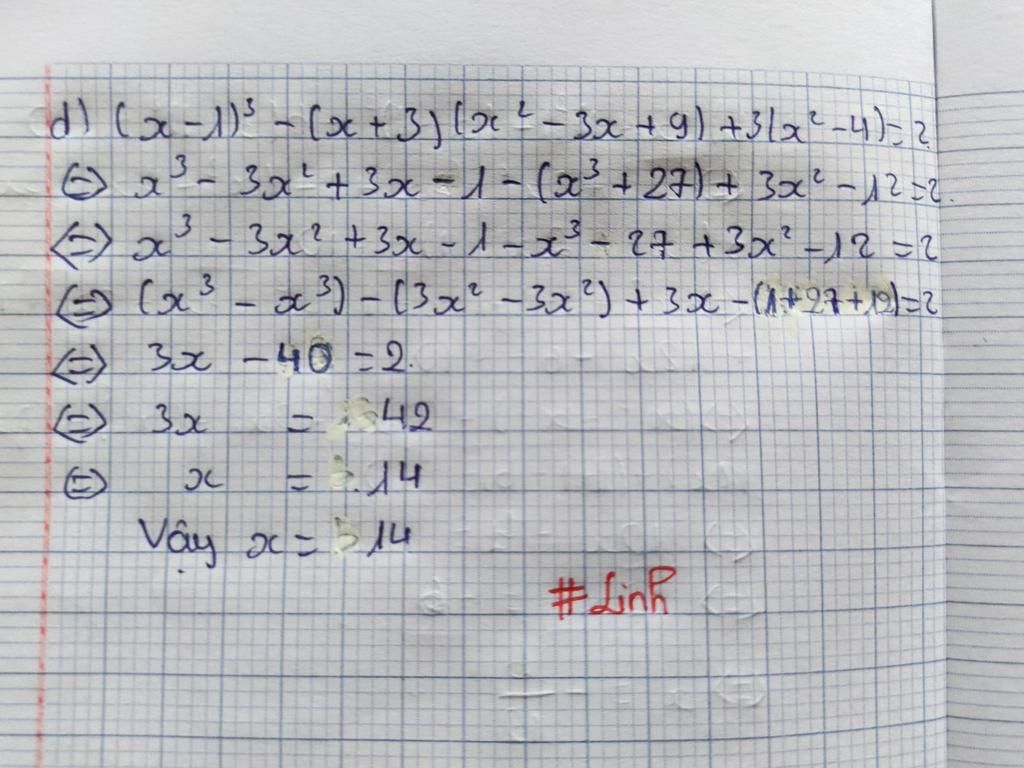 d) (x-1)³ - (x+3)(x² - 3x + 9) + 3(x² - 4) = 2
⇔ x³ - 3x² + 3x - 1 - (x³ + 27) + 3x² - 12 = 2.
⇔ x³ - 3x² + 3x - 1 - x³ - 27 + 3x² - 12 = 2
⇔ (x³ - x³) - (3x² - 3x²) + 3x - (1+27+12) = 2
⇔ 3x - 40 = 2.
⇔ 3x = 42
⇔ x = 14
Vậy x = 14
#Linh